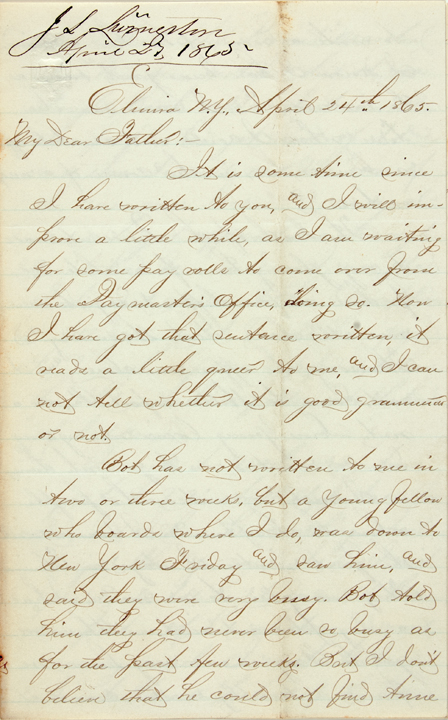 J. L. Livingston
April 27, 1865
Elmira N.Y., April 24th 1865.
My Dear Father:-
It is some time since
I have written to you, and I will im-
prove a little while, as I am waiting
for some pay rolls to come over from
the Paymaster's Office, doing so. Now
I have got that sentence written, it
reads a little queer to me, and I can
not tell whether it is good grammar
or not.
Bob has not written to me in
two or three weeks, but a young fellow
who boards where I do, was down to
New York Friday and saw him, and
said they were very busy. Bob told
him they had never been so busy as
for the past few weeks. But I don't
believe that he could not find time